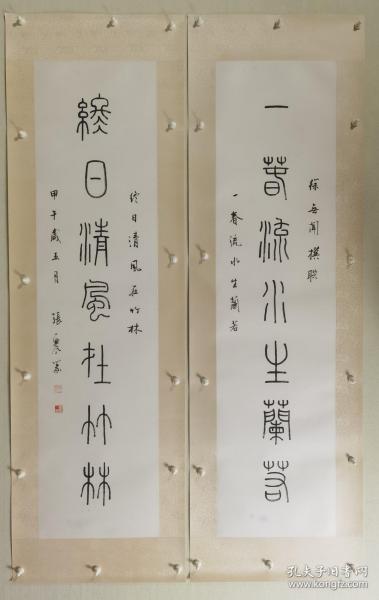 一春流水生蘭若
徐無聞撰聯
一春流水生蘭若
終日清風在竹林
終日清風在竹林
甲午歲五月
孔夫子旧书网
www.kongfz.com